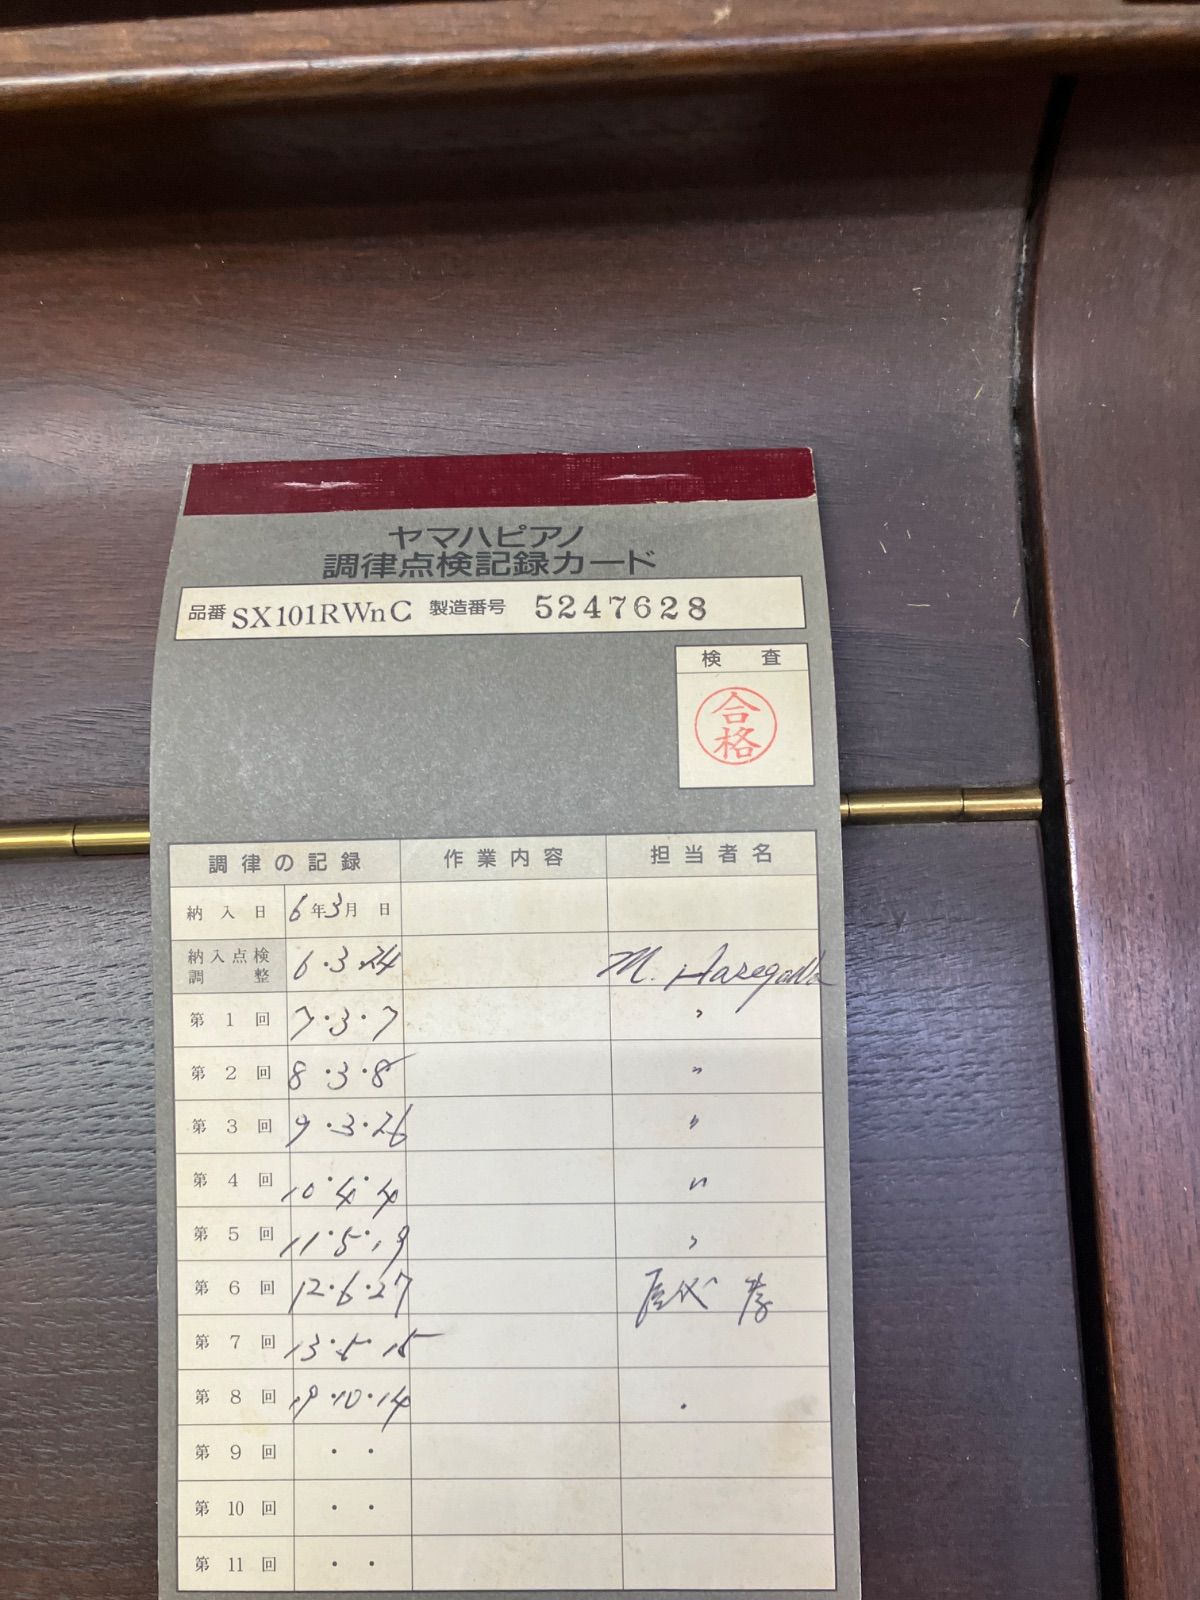 ヤマハピアノ
調律点検記録カード
品番 SX101RWnC 製造番号 5247628
検査
合格
調律の記録 作業内容 担当者名
納入日 6年3月 日
納入点検調整 6・3・24 M. Hasegawa
第1回 7・3・7 〃
第2回 8・3・8 〃
第3回 9・3・26 〃
第4回 10・4・4 〃
第5回 11・5・19 〃
第6回 12・6・27
第7回 13・5・15
第8回 19・10・14
第9回 ・ ・
第10回 ・ ・
第11回 ・ ・